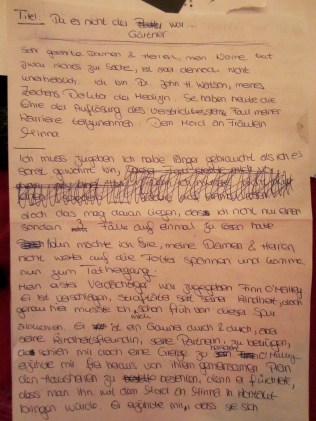 Titel: Da es nicht der war...
Gärtner
Sehr geehrte Damen & Herren, mein Name tut
zwar nichts zur Sache, ist aber dennoch nicht
unerheblich. Ich bin Dr. John H. Watson, meines
Zeichens Doktor der Medizin. Sie haben heute die
Ehre der Auflösung des Fall meiner
Karriere beizuwohnen. Dem Mord an Fräulein
Stinna.
Ich muss zugeben ich habe länger gebraucht als ich es
sonst gewohnt bin,
doch das mag daran liegen, dass ich nicht nur einen
sondern Fälle auf einmal zu lösen hatte
Nun möchte ich Sie, meine Damen & Herren
nicht weiter auf die Folter spannen und komme
nun zum Tathergang.
Mein erster Verdächtiger war zugegeben Finn O'Malley
Er ist verschlagen, Straftäter seit seiner Kindheit, doch
genau hier musste ich mich schon früh von dieser Spur
Er ist ein Gauner durch & durch, aber
seine Kindheitsfreundin, seine Partnerin, zu betrügen,
das schien mir doch eine Grenze zu O'Malley
erzählte mir frei heraus von ihrem gemeinsamen Plan
den Hausherren zu bestehlen, denn er fürchtete,
dass man ihn mit dem Mord an Stinna in Kontakt
bringen würde. Er erzählte mir, dass sie sich